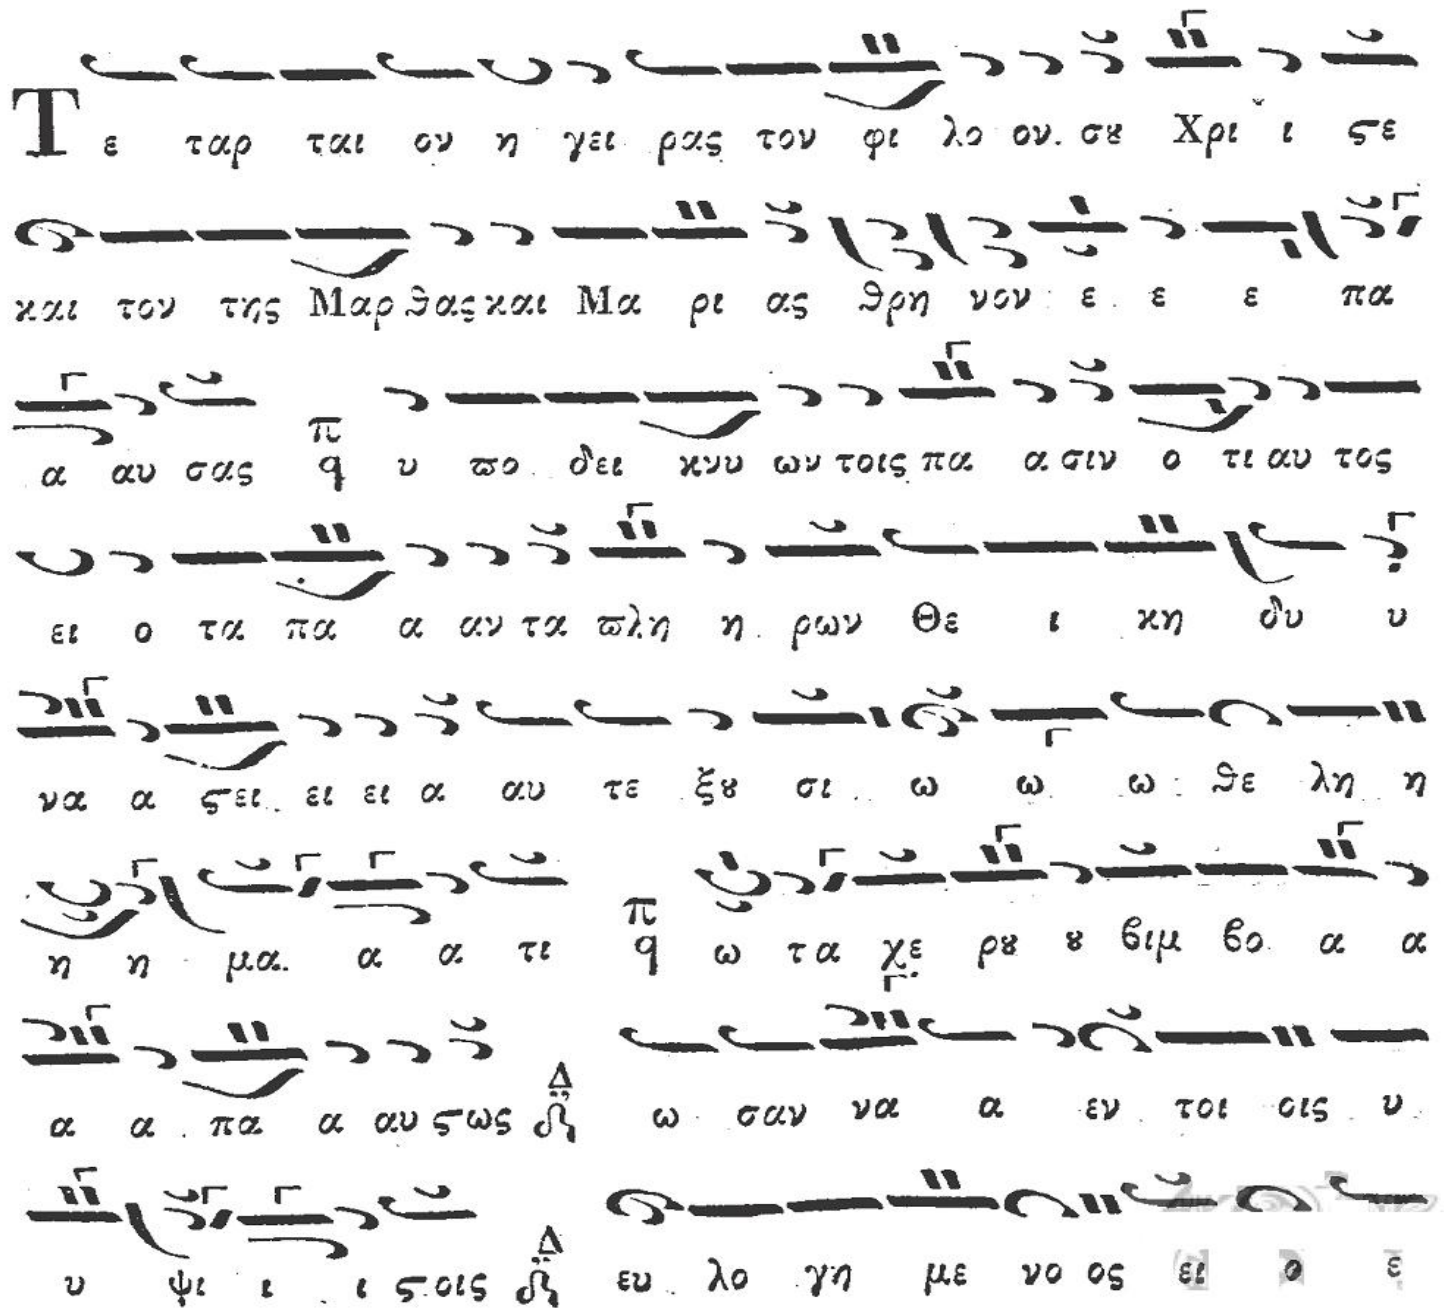 Τε ταρ ται ον η γει ρας τον φι λο ον σȣ Χρι ι ϛε
και τον της Μαρ θας και Μα ρι ας ϑρη νον ε ε ε πα
α αυ σας π q υ ϖο δει κνυ ων τοις πα α σιν ο τι αυ τος
ει ο τα πα α αν τα ϖλη η ρων Θε ι κη δυ υ
να α ϛει ει ει α αυ τε ξȣ σι ω ω ω ϑε λη η
η η μα α α τι π q ω τα χε ρȣ ȣ ϐιμ ϐο α α
α α πα α αυ ϛως Δ ω σαν να α εν τοι οις υ
υ ψι ι ι ϛοις Δ ευ λο γη με νο ος ει ο ε